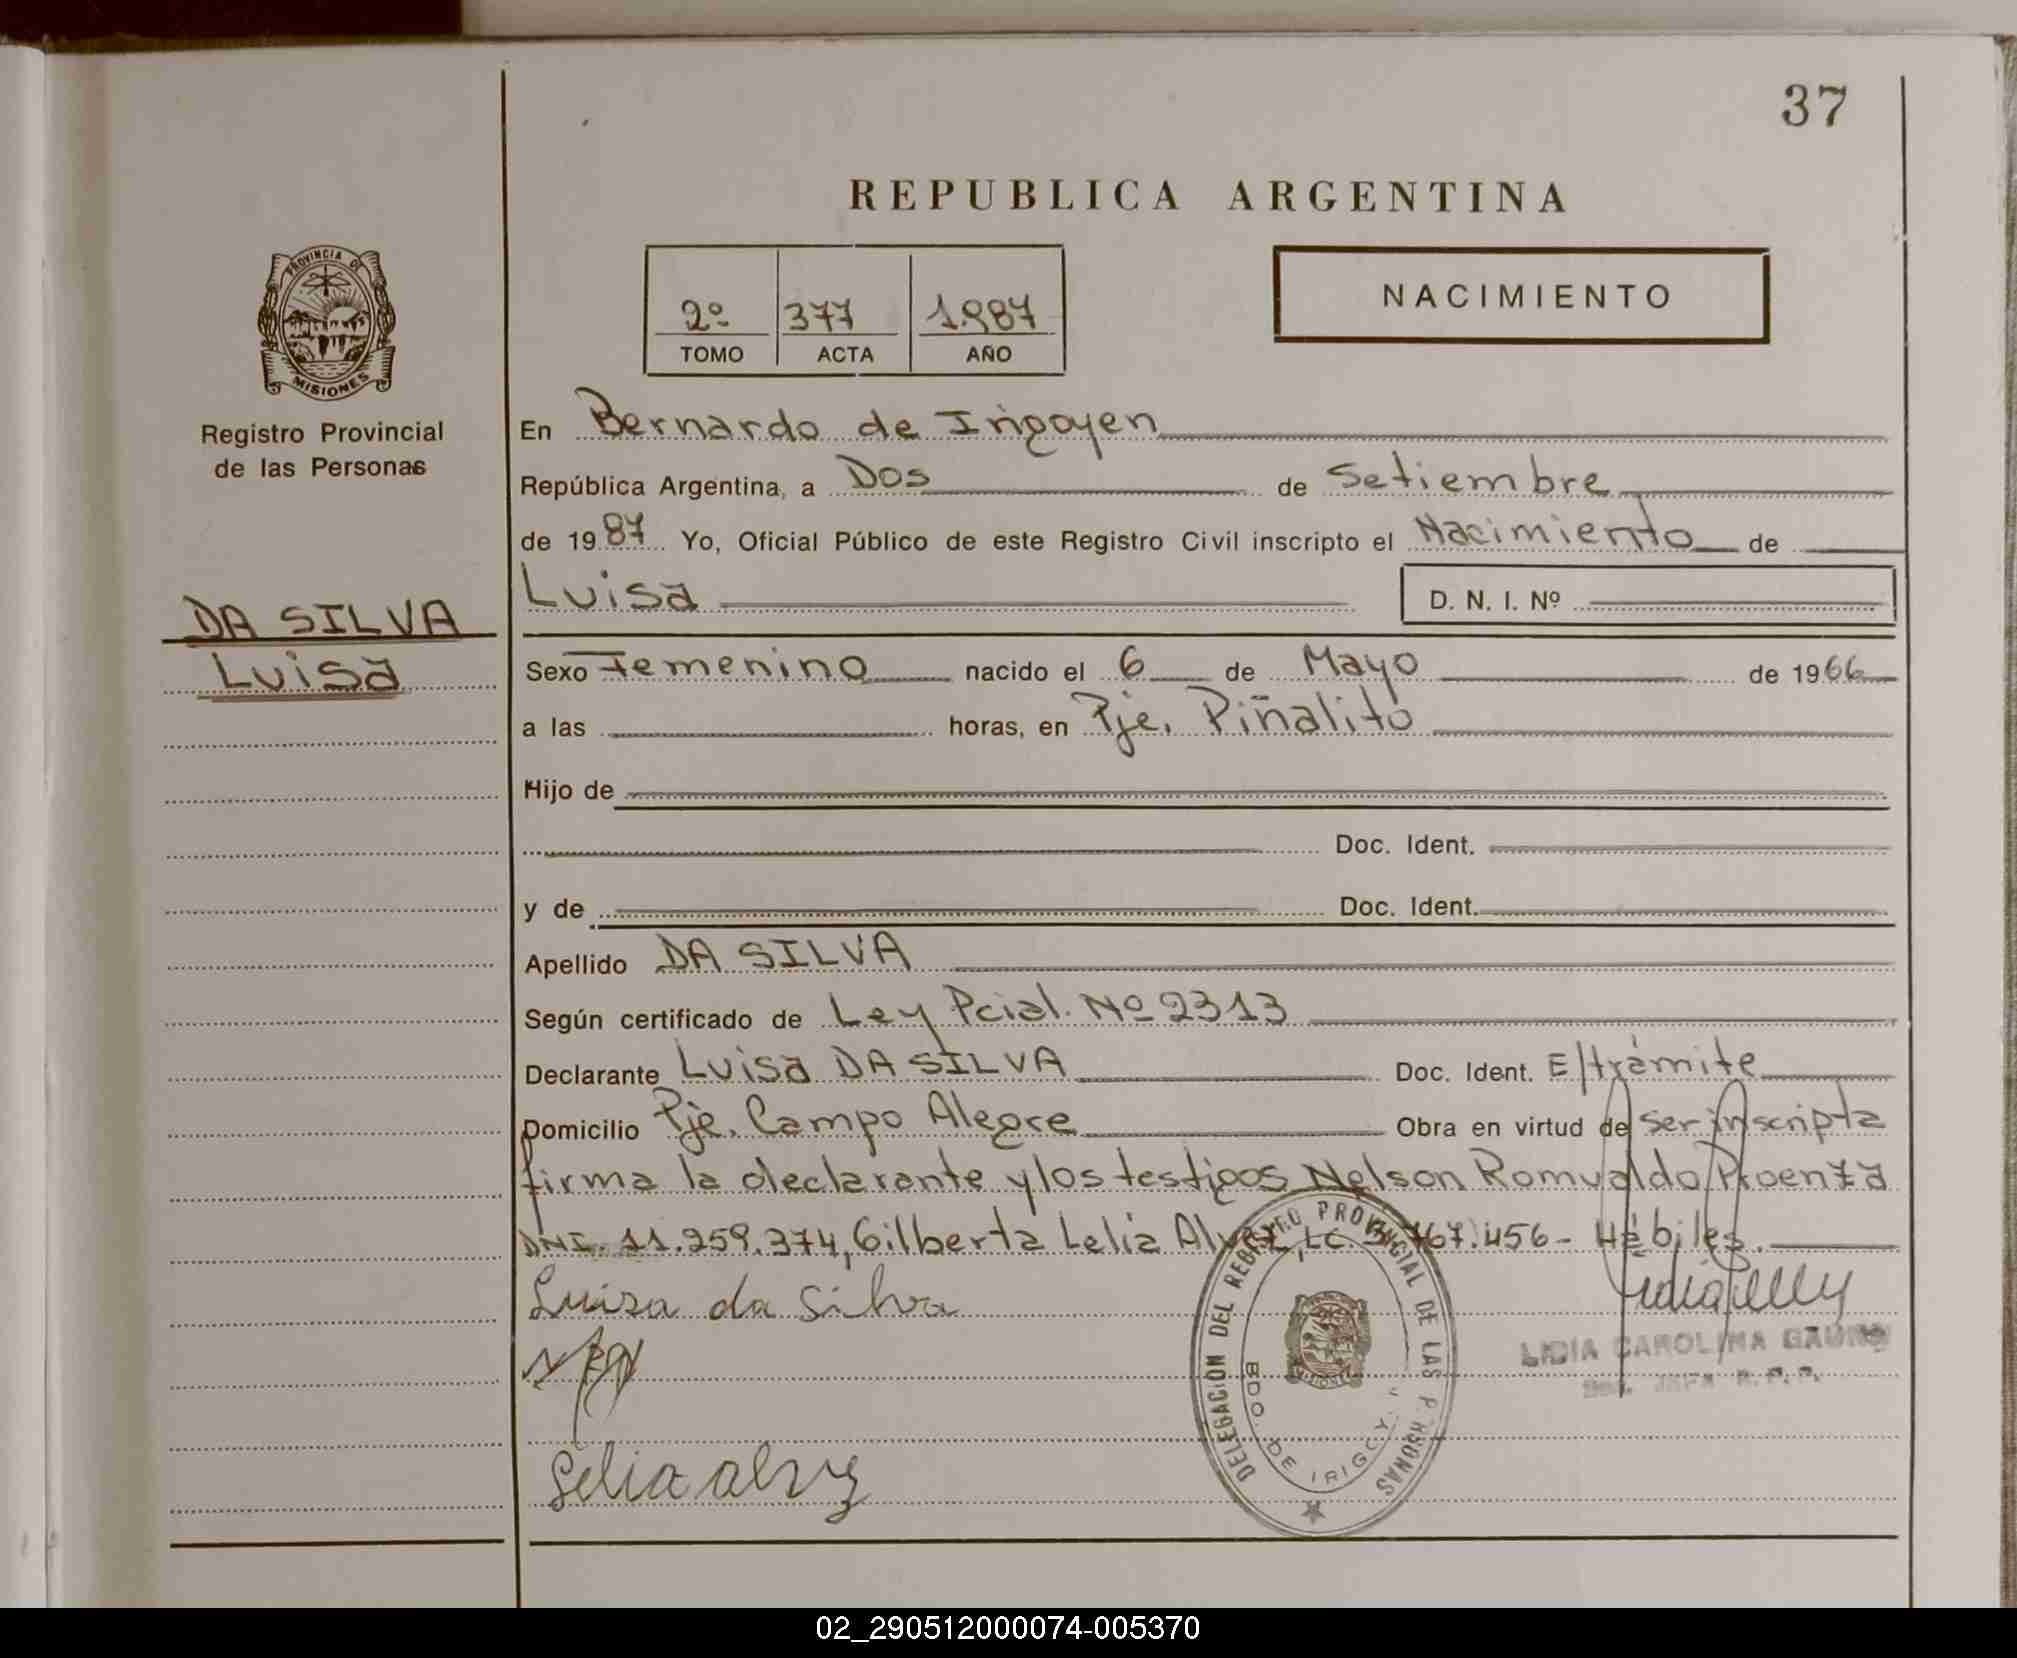 37
REPUBLICA ARGENTINA
PROVINCIA DE MISIONES
Registro Provincial
de las Personas
2º 377 1.987
TOMO ACTA AÑO
NACIMIENTO
En Bernardo de Irigoyen
República Argentina, a Dos de Setiembre
de 1987 Yo, Oficial Público de este Registro Civil inscripto el Nacimiento de
Luisa D. N. I. Nº
DA SILVA
Luisa
Sexo Femenino nacido el 6 de Mayo de 1966
a las horas, en Pje. Piñalito
Hijo de
Doc. Ident.
y de Doc. Ident.
Apellido DA SILVA
Según certificado de Ley Pcial. Nº 2313
Declarante Luisa DA SILVA Doc. Ident. E/trámite
Domicilio Pje. Campo Alegre Obra en virtud de ser inscripta
firma la declarante y los testigos Nelson Romualdo Proenza
DNI. 11.959.374, Gilberta Lelia Alvez, LC. 467.456- Hábiles.
Luisa da Silva
LIDIA CAROLINA
Lelia alvez
DELEGACION DEL REGISTRO PROVINCIAL DE LAS PERSONAS
BDO. DE IRIGOYEN
02_290512000074-005370